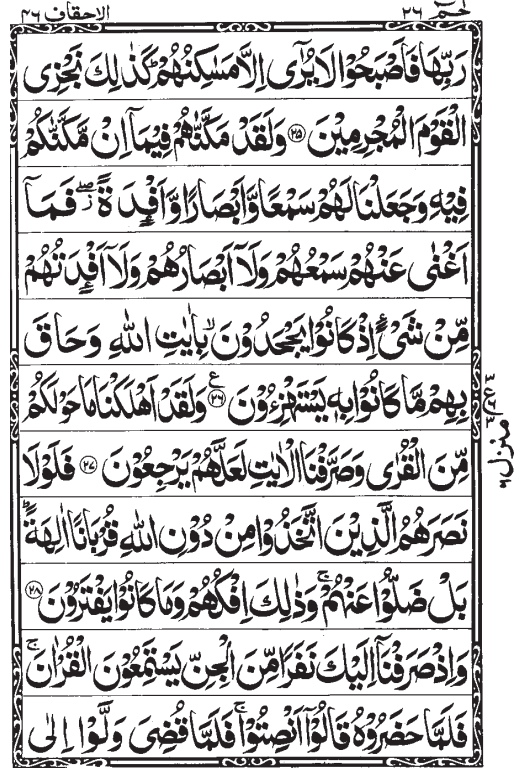 حٰمٓ ٢٦
الاحقاف ٤٦
رَبِّهَا فَاَصْبَحُوْا لَا يُرٰٓى اِلَّا مَسٰكِنُهُمْ ؕ كَذٰلِكَ نَجْزِى
الْقَوْمَ الْمُجْرِمِيْنَ ﴿۲۵﴾ وَلَقَدْ مَكَّنّٰهُمْ فِيْمَاۤ اِنْ مَّكَّنّٰكُمْ
فِيْهِ وَجَعَلْنَا لَهُمْ سَمْعًا وَّاَبْصَارًا وَّاَفْـِٕدَةً ۖ فَمَاۤ
اَغْنٰى عَنْهُمْ سَمْعُهُمْ وَلَاۤ اَبْصَارُهُمْ وَلَاۤ اَفْـِٕدَتُهُمْ
مِّنْ شَىْءٍ اِذْ كَانُوْا يَجْحَدُوْنَ ۙ بِاٰيٰتِ اللّٰهِ وَحَاقَ
بِهِمْ مَّا كَانُوْا بِهٖ يَسْتَهْزِءُوْنَ ﴿۲۶﴾ ع وَلَقَدْ اَهْلَكْنَا مَا حَوْلَكُمْ
مِّنَ الْقُرٰى وَصَرَّفْنَا الْاٰيٰتِ لَعَلَّهُمْ يَرْجِعُوْنَ ﴿۲۷﴾ فَلَوْلَا
نَصَرَهُمُ الَّذِيْنَ اتَّخَذُوْا مِنْ دُوْنِ اللّٰهِ قُرْبَانًا اٰلِهَةً ؕ
بَلْ ضَلُّوْا عَنْهُمْ ۚ وَذٰلِكَ اِفْكُهُمْ وَمَا كَانُوْا يَفْتَرُوْنَ ﴿۲۸﴾
وَاِذْ صَرَفْنَاۤ اِلَيْكَ نَفَرًا مِّنَ الْجِنِّ يَسْتَمِعُوْنَ الْقُرْاٰنَ ۚ
فَلَمَّا حَضَرُوْهُ قَالُوْۤا اَنْصِتُوْا ۚ فَلَمَّا قُضِىَ وَلَّوْا اِلٰى
منزل ٦